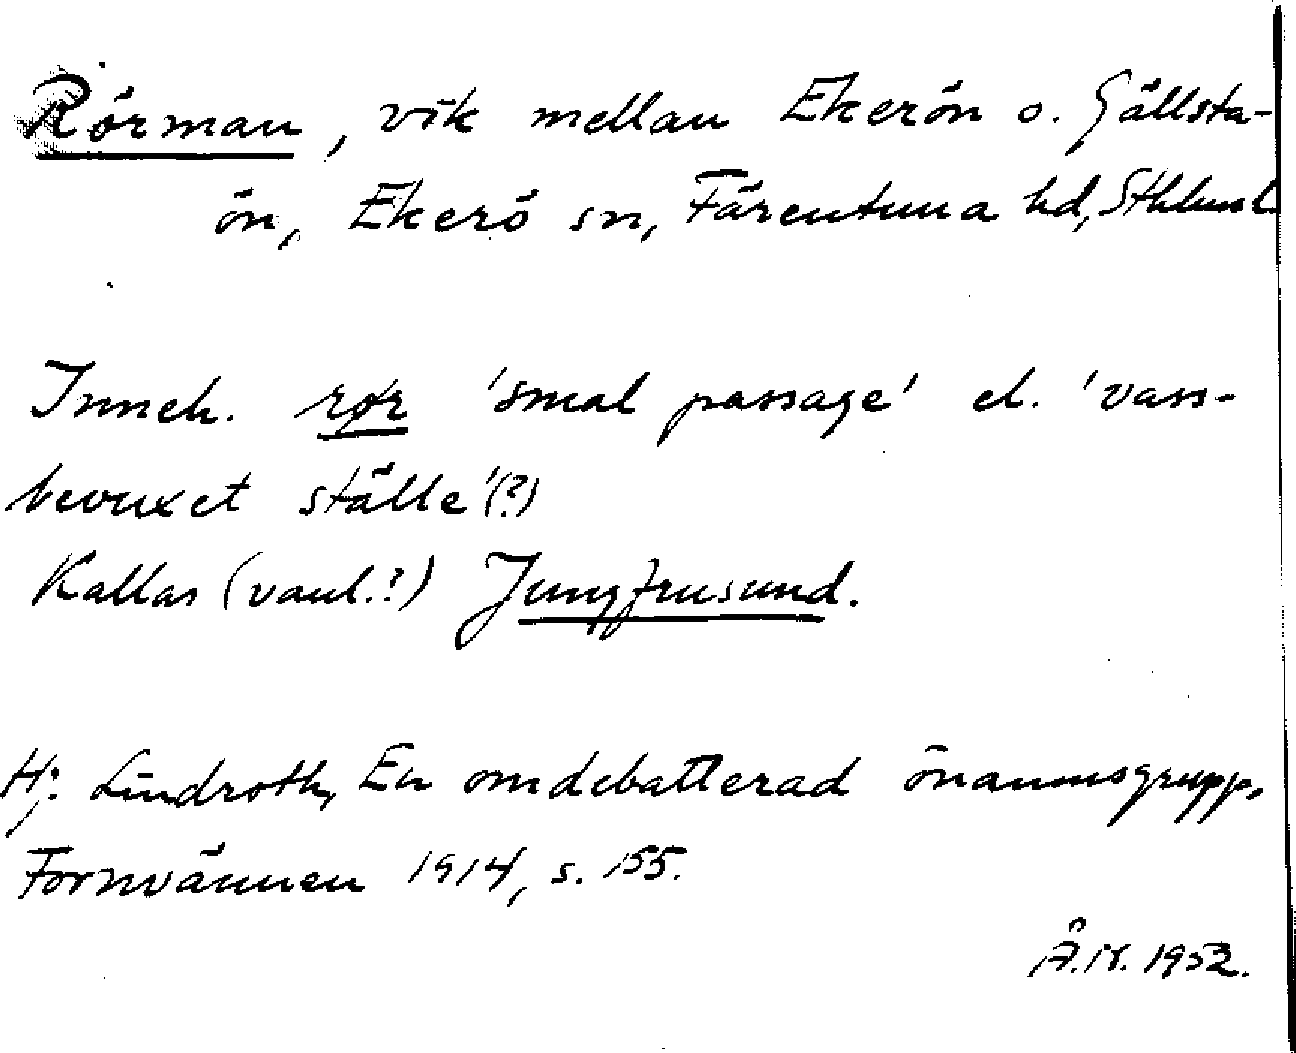 Rörman, vik mellan Ekerön o. Gällsta-
ön, Ekerö sn, Färentuna hd, Sthlmsl.
Inneh. rør 'smal passage' el. 'vass-
bevuxet ställe'(?)
Kallas (vanl.?) Jungfrusund.
Hj. Lindroth, En omdebatterad önamnsgrupp,
Fornvännen 1914, s. 155.
Å.N. 1952.